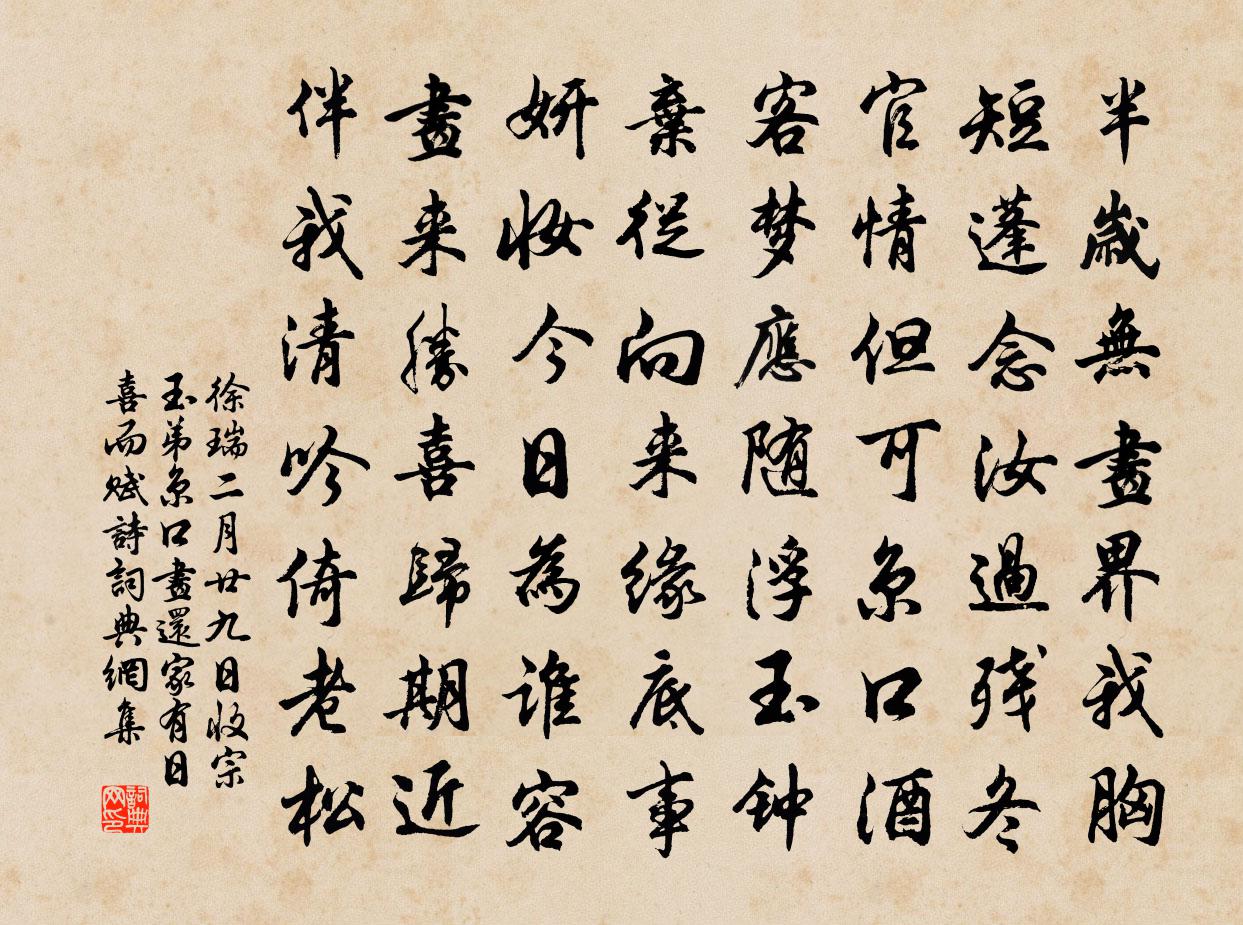 半歲無畫界我胸
短蓬念汝過残冬
官情但可京口酒
客梦應随浮玉钟
棄從向来緣底事
妍妆今日為谁容
畫来勝喜歸期近
伴我清吟倚老松
徐瑞二月廿九日收宗
玉弟京口畫還家有日
喜而赋詩詞典網集
詞典
网印